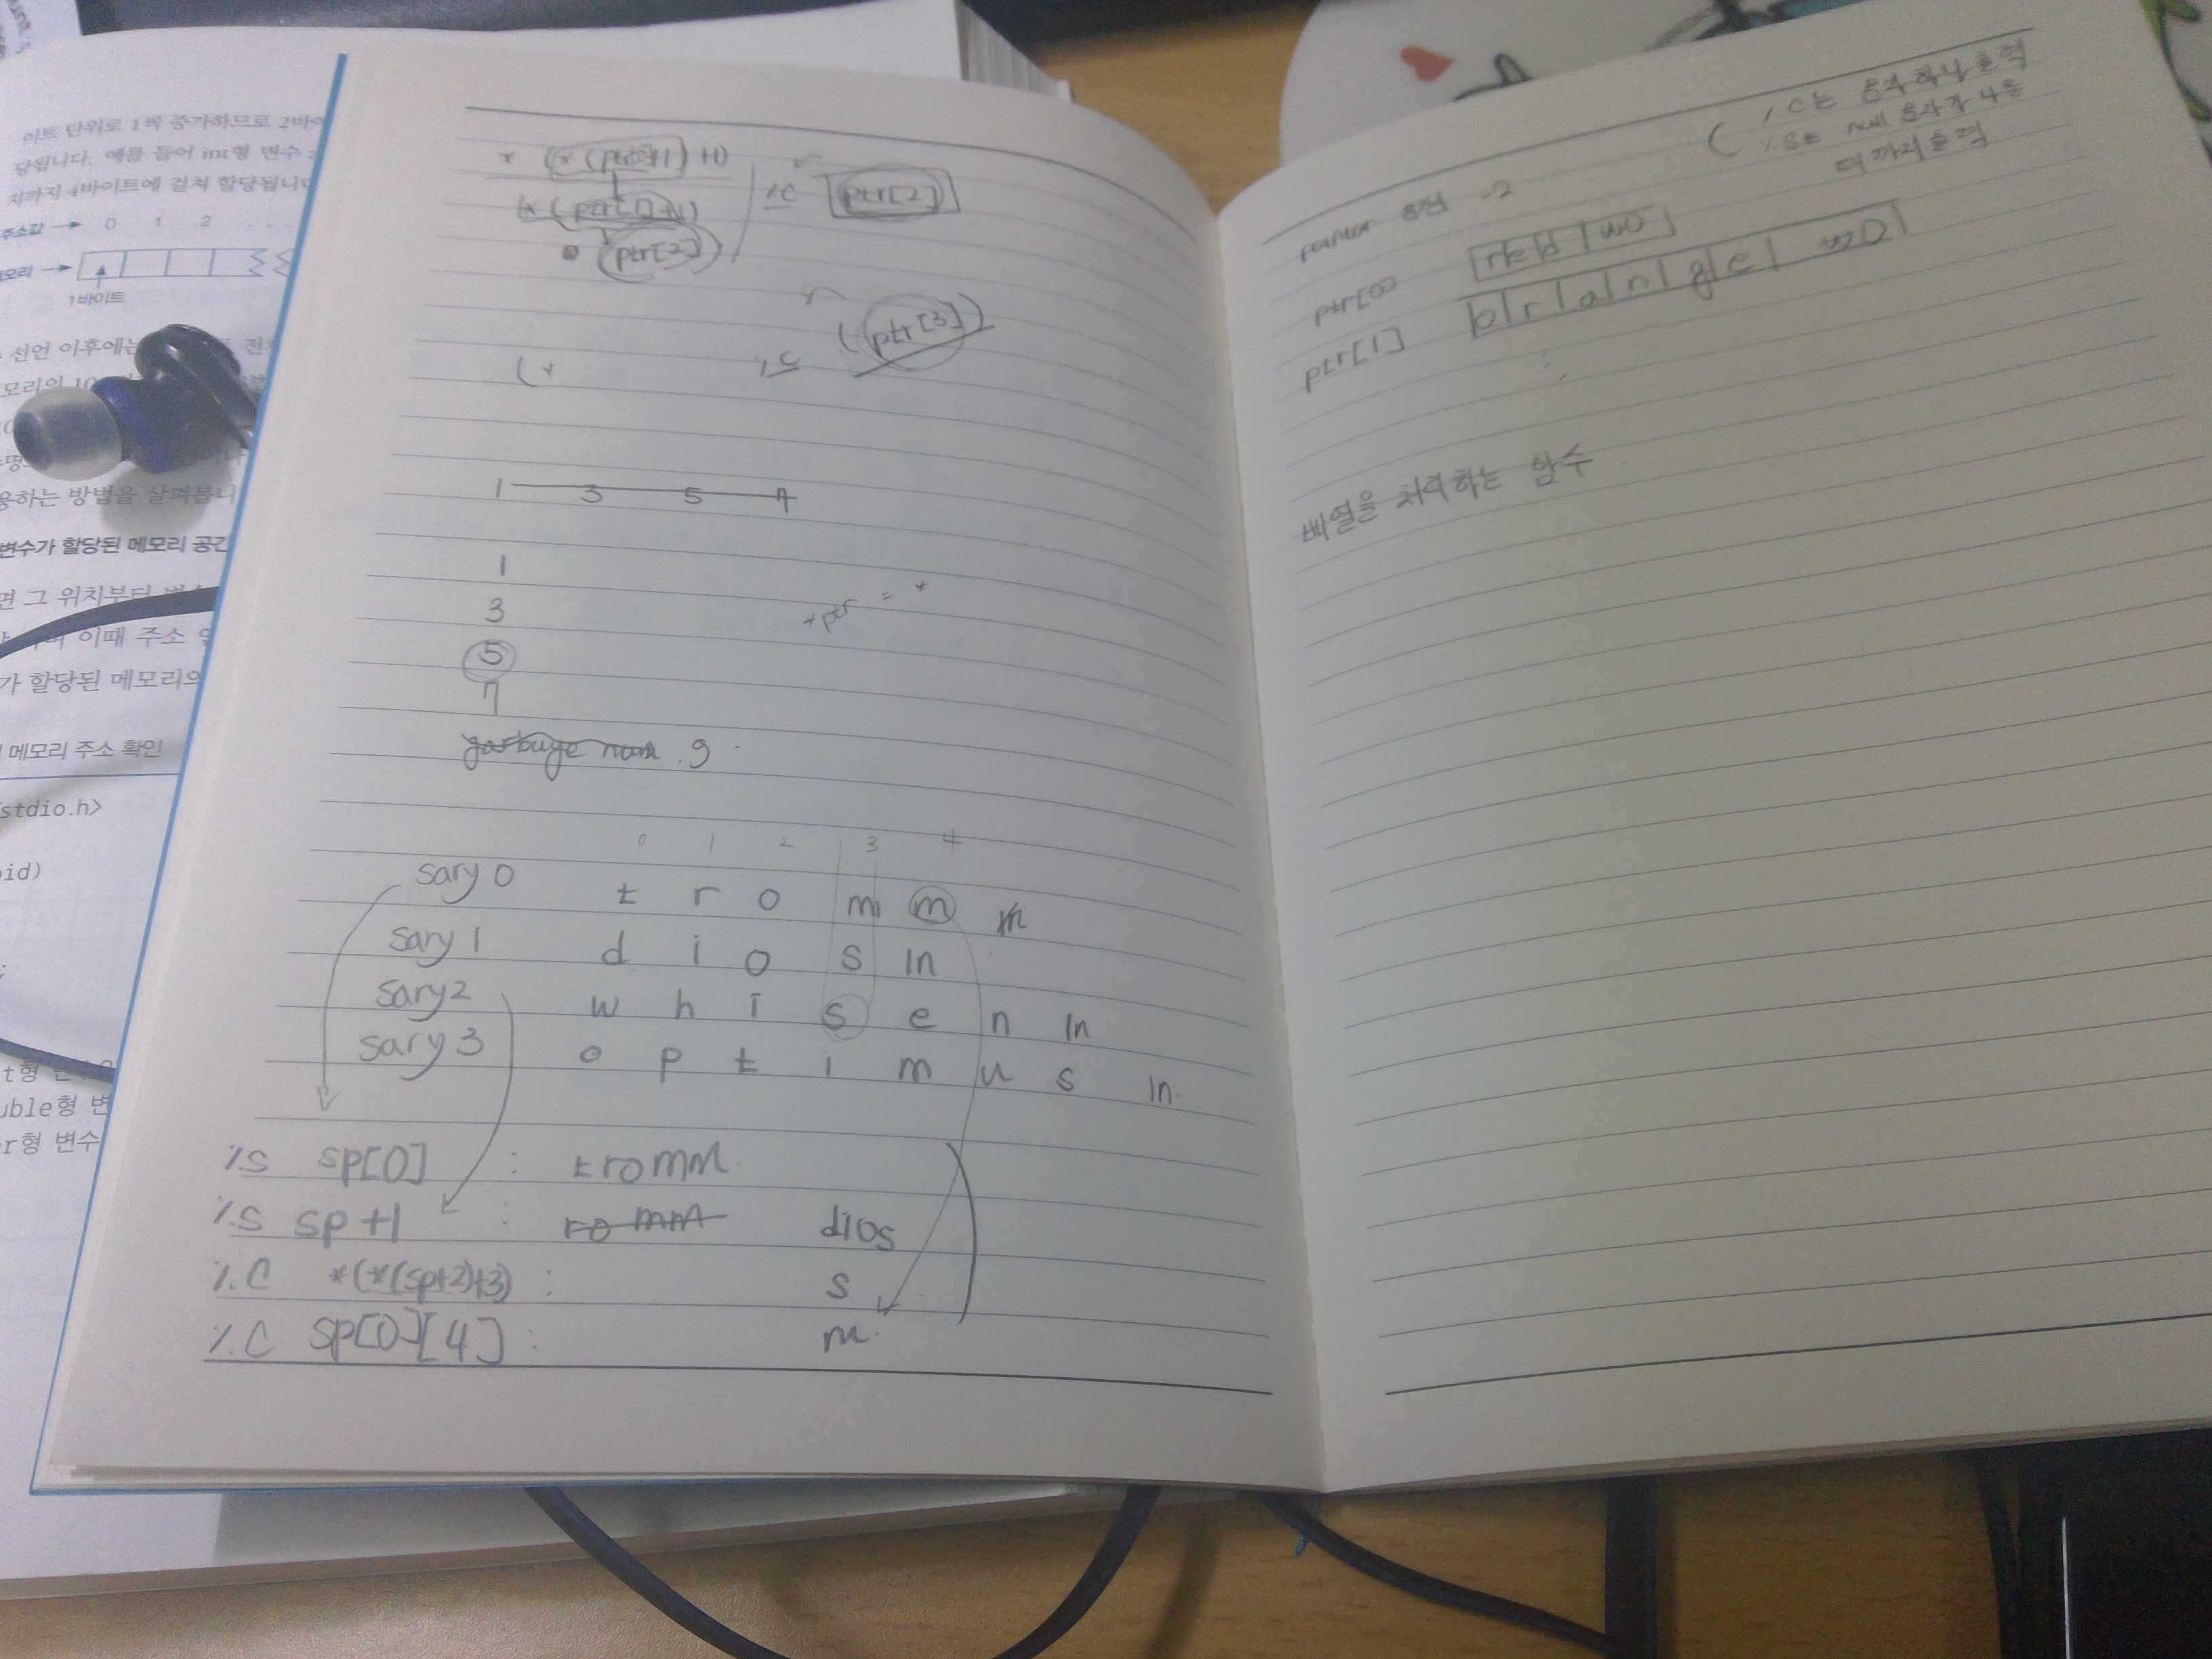 이트 단위로 1씩 증가하므로 2바이
당됩니다. 예를 들어 int형 변수
지까지 4바이트에 걸쳐 할당됩니다
주소값 → 0 1 2 . . .
모리 →
1바이트
선언 이후에는 전
용하는 방법을 살펴봅니
변수가 할당된 메모리 공간
면 그 위치부터
이때 주소
가 할당된 메모리의
메모리 주소 확인
stdio.h>
oid)
t형
uble형 변
r형 변수
+1) +1)
ptr[2]
%c ptr[2]
(ptr[3])
%c
(*
1 3 5 7
1
3
5
7
*ptr = *
garbage num . 9
0 1 2 3 4
sary 0 t r o m m \n
sary 1 d i o s \n
sary2 w h i s e n \n
sary 3 o p t i m u s \n
%s sp[0] : tromm
%s sp+1 : romm dios
%c *(*(sp+2)+3) : s
%c sp[0][4] : m
( %c는 문자 하나 출력
%s는 null 문자가 나올
때 까지 출력
pointer -2
ptr[0] r e d \0
ptr[1] o r a n g e \0
배열을 처리하는 함수